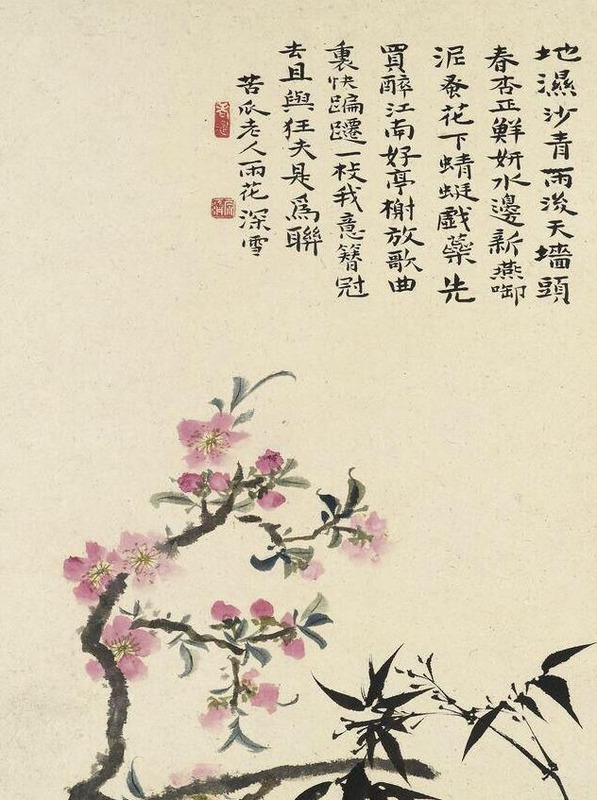 地濕沙青雨後天墻頭
春杏正鮮妍水邊新燕啣
泥蚤花下蜻蜓戲藥先
買醉江南好亭榭放歌曲
裏快蹁躚一枝我意簪冠
去且與狂夫是爲聯
苦瓜老人雨花深雪